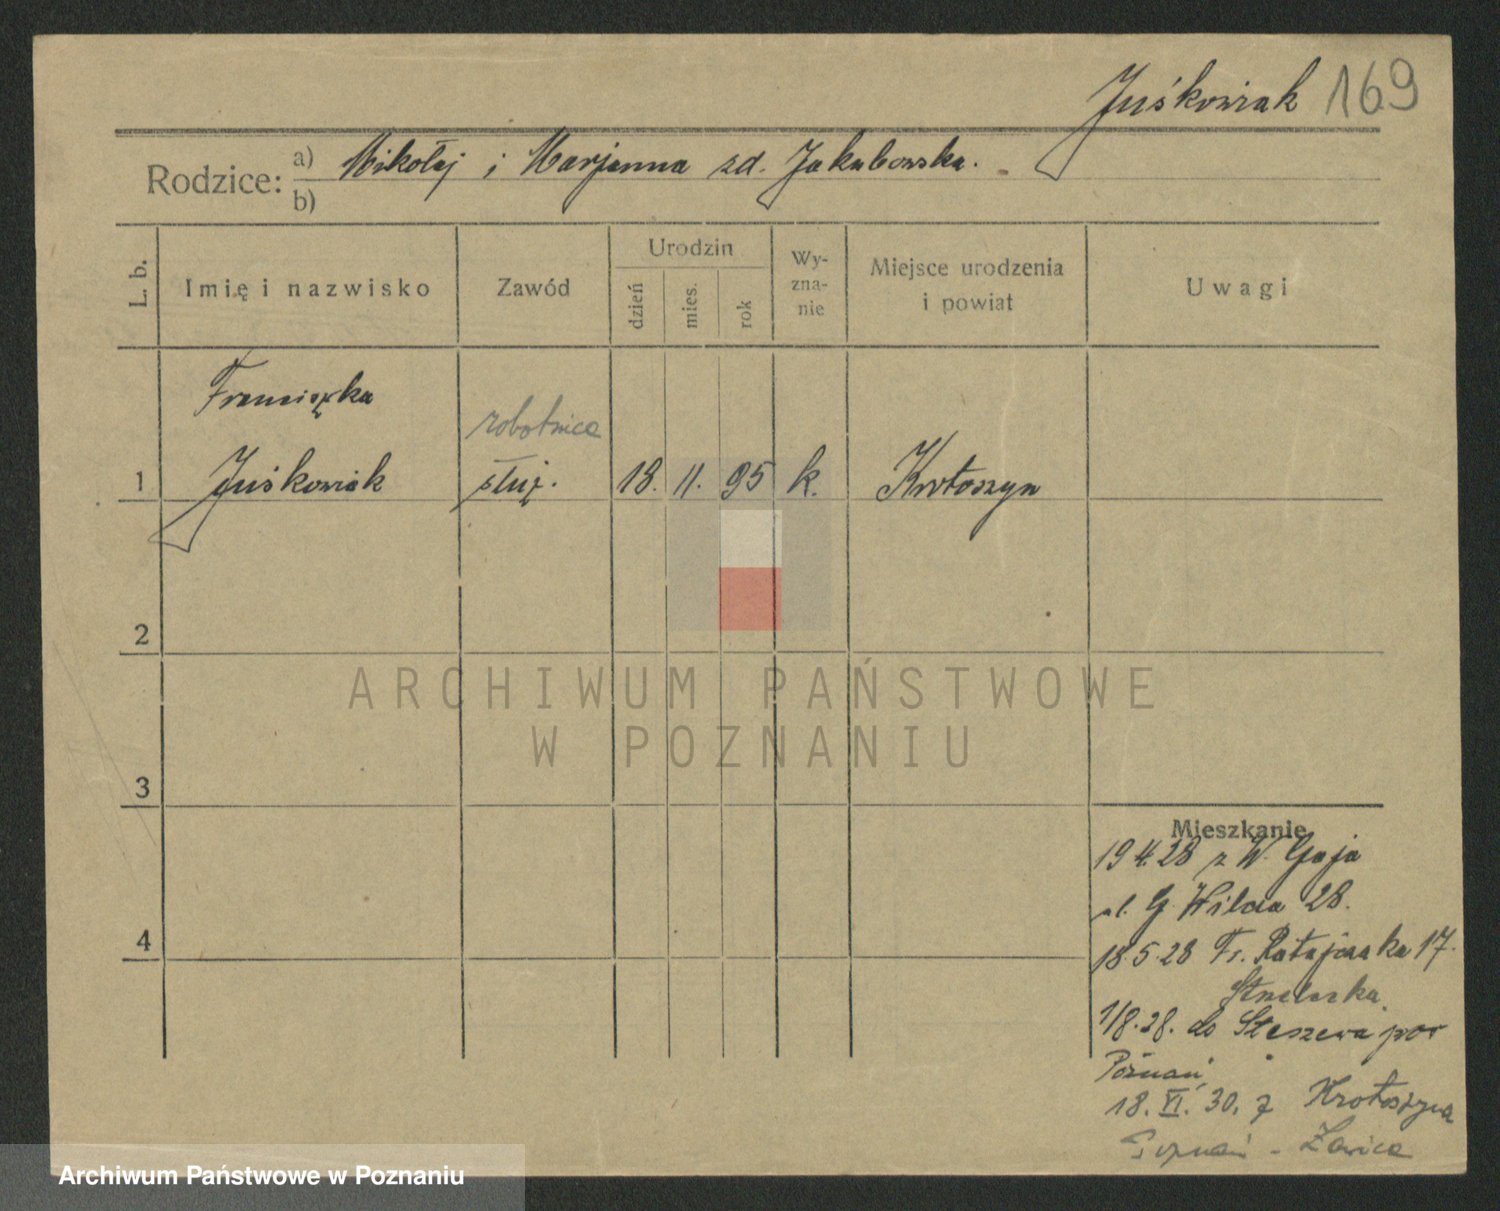 Juśkowiak 169
Rodzice: a) Mikołaj i Marjanna zd. Jakubowska.
b)
L. b.
Imię i nazwisko
Zawód
Urodzin
dzień
mies.
rok
Wy-
zna-
nie
Miejsce urodzenia
i powiat
Uwagi
Franciszka
robotnica
1 Juśkowiak służ. 18. 11. 95 k. Krotoszyn
2
ARCHIWUM PAŃSTWOWE
W POZNANIU
3
Mieszkanie
19 4.28 z W. Gaja
ul. G. Wilda 28.
4
18.5.28 Fr. Ratajczaka 17.
1/8.28. do Stęszewa pow
Poznań
18. VI. 30. z Krotoszyna
Poznań - Ławica
Archiwum Państwowe w Poznaniu